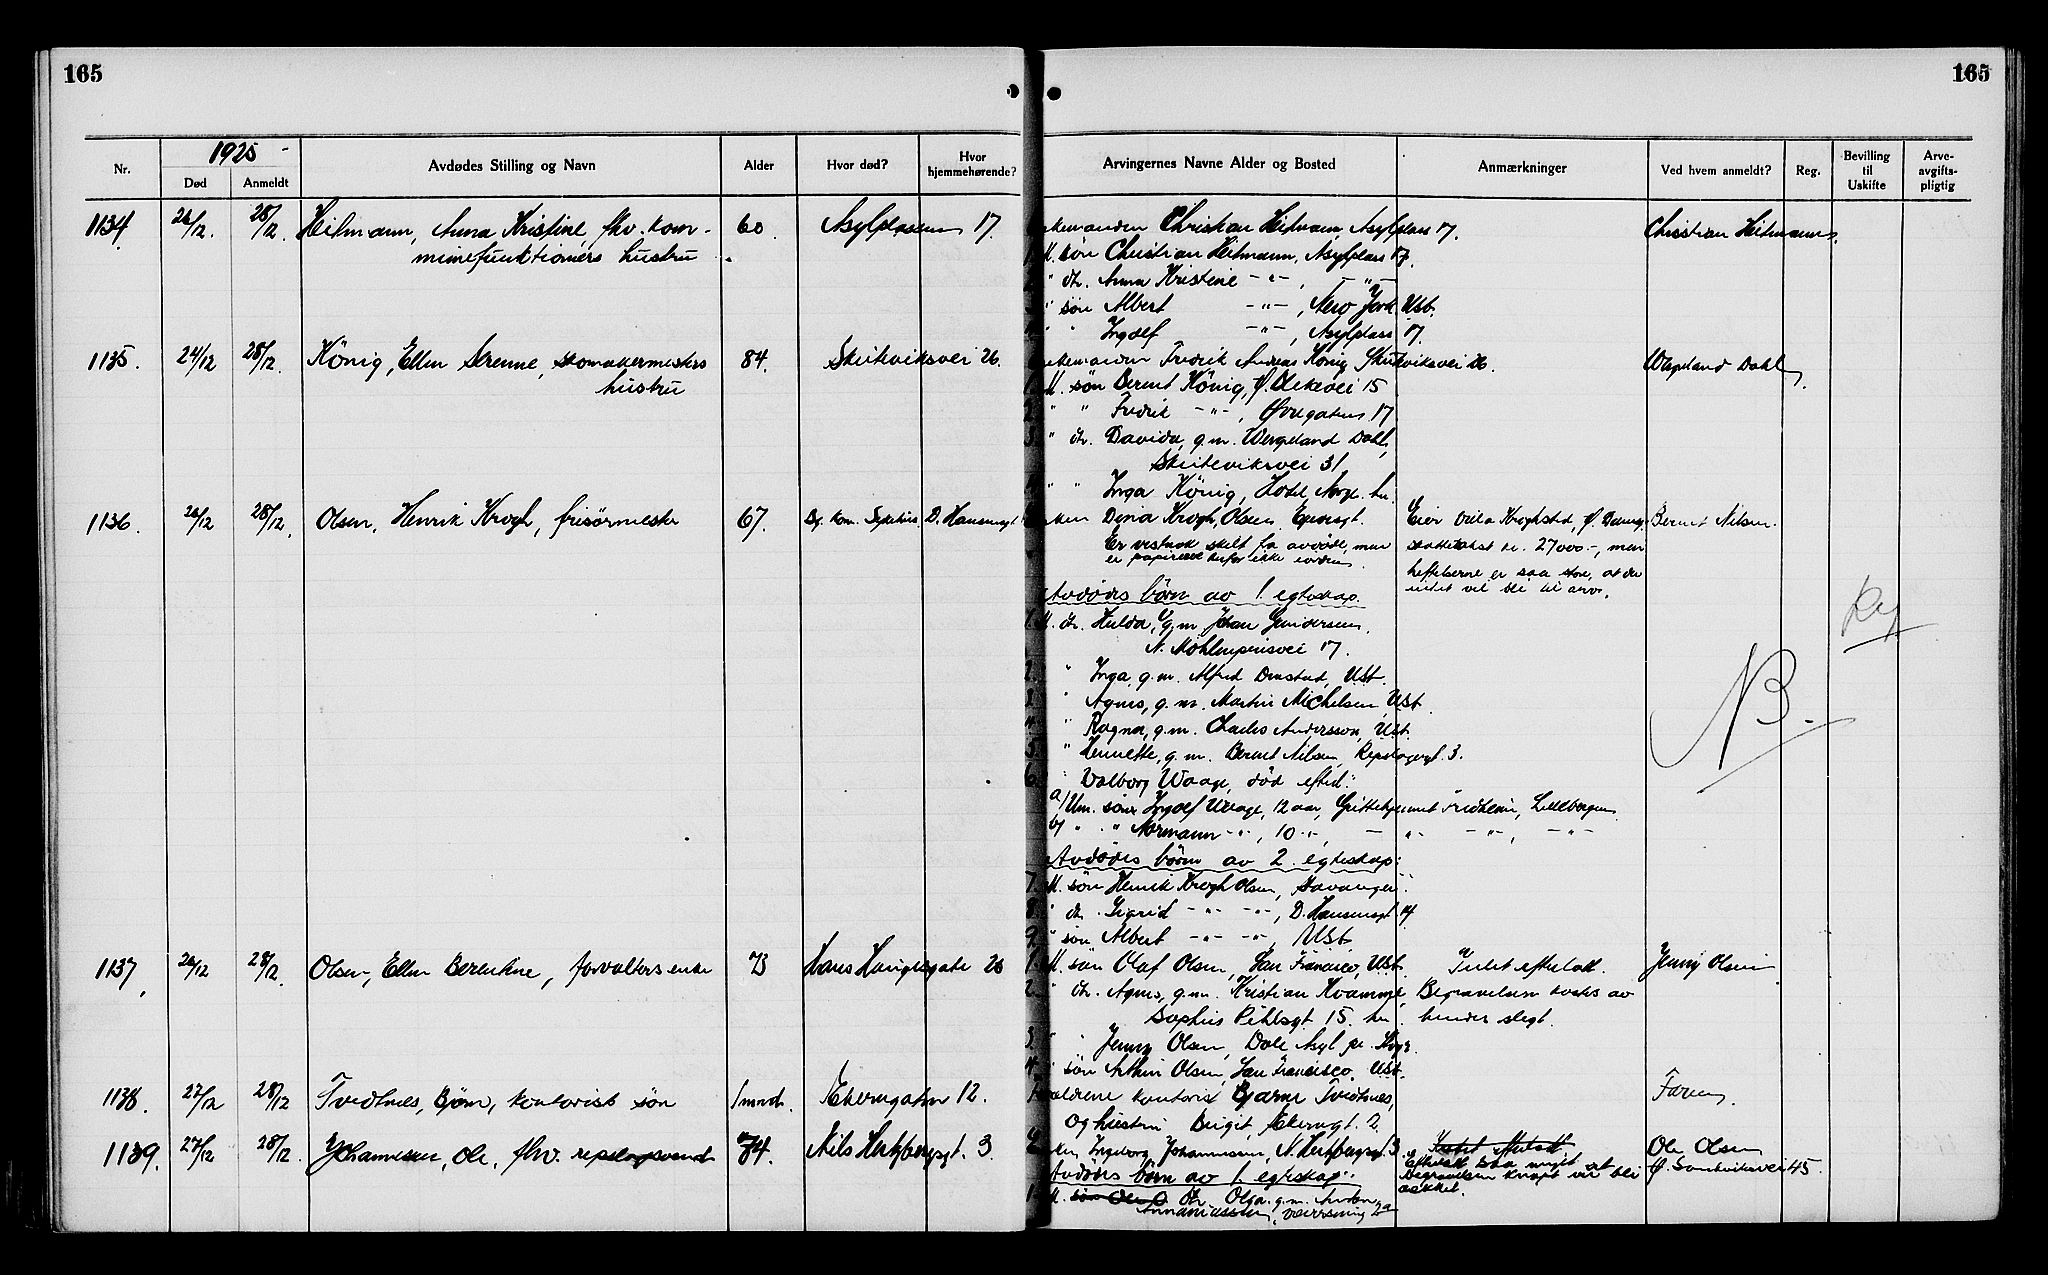 165
165
1925 -
Nr.
Død
Anmeldt
Avdødes Stilling og Navn
Alder
Hvor død?
Hvor hjemmehørende?
Arvingernes Navne Alder og Bosted
Anmærkninger
Ved hvem anmeldt?
Reg.
Bevilling til Uskifte
Arve-avgifts-pligtig
1134 26/12. 28/12. Heitmann, Anna Kristine, fhv. kom- 60. Asylplassen 17. Enkemanden Christian Heitmann, Asylplass 17. Christian Heitmann.
munefunktionærs hustru. 1. M. søn Christian Heitmann, Asylplass 17.
2. " dtr. Anna Kristine - " - , - " -
3. " søn Albert - " - , New York Ust.
4. " " Ingolf - " - , Asylplass 17.
1135. 24/12 28/12. König, Ellen Serenne, skomakermesters 84. Skuteviksvei 26. Enkemanden Fredrik Andreas König Skuteviksvei 26. Wergeland Dahl.
hustru 1. M. søn Bernt König, Ø. Blekevei 15
2. " " Fredrik - " - , Øvregaten 17
3. " dtr. Davida, g.m. Wergeland Dahl,
Skuteviksvei 31
4. " " Inga König, Hotel Norge. hu.
1136. 26/12 28/12. Olsen, Henrik Krogh, frisørmester 67. Bg. kom. Sykehus. D. Hansensgt. Enken Dina Krogh Olsen Eier villa Kroghsted, Bernt Nilsen.
Er vistnok skilt fra avdøde, men skattetakst kr. 27000.-, men
er papirerne derfor ikke iorden. heftelserne er saa store, at der
Avdødes børn av 1. egteskap. intet vil bli til arv.
1. M. dtr. Hulda, g.m. Johan Gundersen,
N. Møhlenprisvei 17.
2. " Inga, g.m. Alfred Onstad, Ust.
3. " Agnes, g.m. Martin Michelsen, Ust.
4. " Ragna, g.m. Charles Andersson, Ust.
5. " Henriette, g.m. Bernt Nilsen, Repslagergt. 3.
6. " Valborg Waage, død efterl:
a/ Um. søn Ingolf Waage, 12 aar, Guttehjemmet Fridheim, Lillebergen
b/ " " Normann - " - , 10 - " - , - " - - " - , - " -
Avdødes børn av 2. egteskap:
7. M. søn Henrik Krogh Olsen, Stavanger.
8. " dtr. Sigrid - " - - " - , D. Hansensgt. 14
9. " søn Albert - " - - " - , Ust
Reg
NB.-
1137. 26/12 28/12. Olsen, Ellen Berentine, forvalters enke 73 Hans Haugesgate 26 1. M. søn Olaf Olsen, San Francisco, Ust. Intet efterlatt. Jenny Olsen
2. " dtr. Agnes, g.m. Kristian Kvamme, Begravelsen kostes av
Sophus Pihlsgt 15. hu. hendes slegt.
3. " " Jenny Olsen, Dale Asyl pr.
4. " søn Arthur Olsen, San Francisco, Ust.
1138. 27/12 28/12 Tvedtnes, Bjørn, kontorist søn 1 mnd. Ekerengaten 12. Forældrene kontorist Bjarne Tvedtnes, Faren.
og hustru Birgit,
1139. 27/12 28/12. Johannesen, Ole, fhv. repslagersvend 74. Nils Hertzbergsgt. 3. Enken, Ingeborg Johannesen, N. Hertzbergsgt. 3 Intet efterlatt. Ole Olsen
Avdødes børn av 1. egteskap: Efterlatt saa meget at Ø. Sandviksvei 45.
Begravelsen knapt vil bli
dækket.
1. M. søn Ole O dtr. Olga g.m. Anton
Annaniassen,